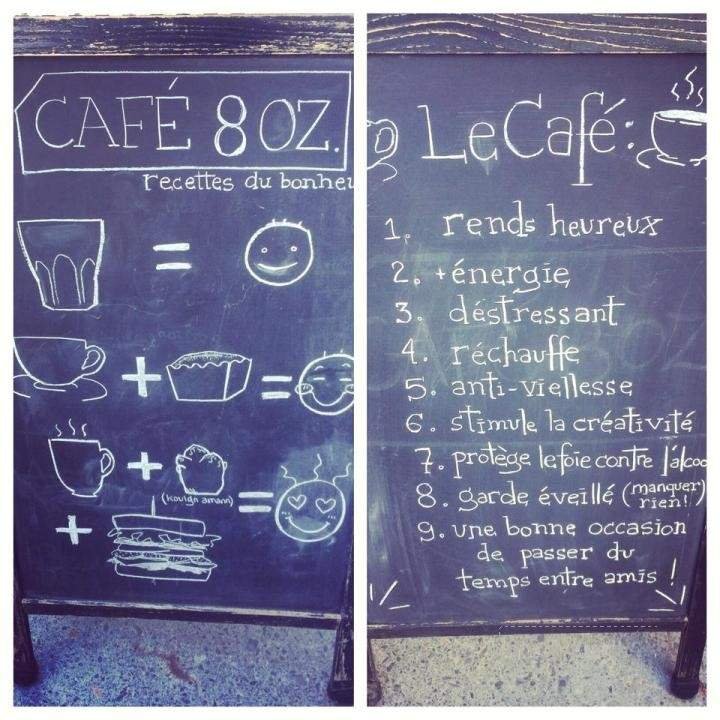 CAFÉ 8 OZ.
recettes du bonheu
(kouign amann)
Le Café:
1. rends heureux
2. +énergie
3. déstressant
4. réchauffe
5. anti-viellesse
6. stimule la créativité
7. protège le foie contre l'alcoo
8. garde éveillé (manquer rien!)
9. une bonne occasion
de passer du
temps entre amis!